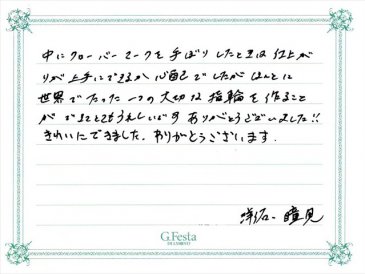 中にクローバーマークを手ぼりしたときは仕上が
りが上手にできるか心配でしたがほんとに
世界でたった一つの大切な指輪を作ること
ができてとてもうれしいです ありがとうございました!!
きれいにできました。ありがとうございます。
G.Festa